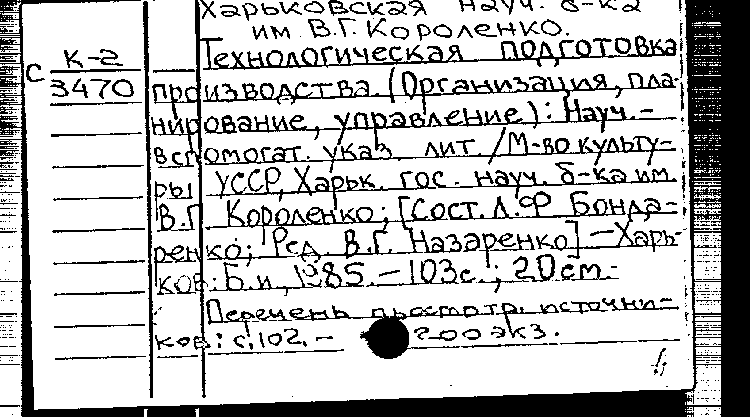 Харьковская науч. б-ка
им. В.Г. Короленко.
К-2
Технологическая подготовка
С
3470
производства (Организация, пла-
нирование, управление): Науч.-
вспомогат. указ. лит. /М-во культу-
ры УССР, Харьк. гос. науч. б-ка им.
В.Г. Короленко; [Сост. Л.Ф Бонда-
ренко; Ред. В.Г. Назаренко] —Харь-
ков: Б.и, 1985.—103с.; 20см.-
Перечень просмотр. источни-
ков: с.102.- 200 экз.